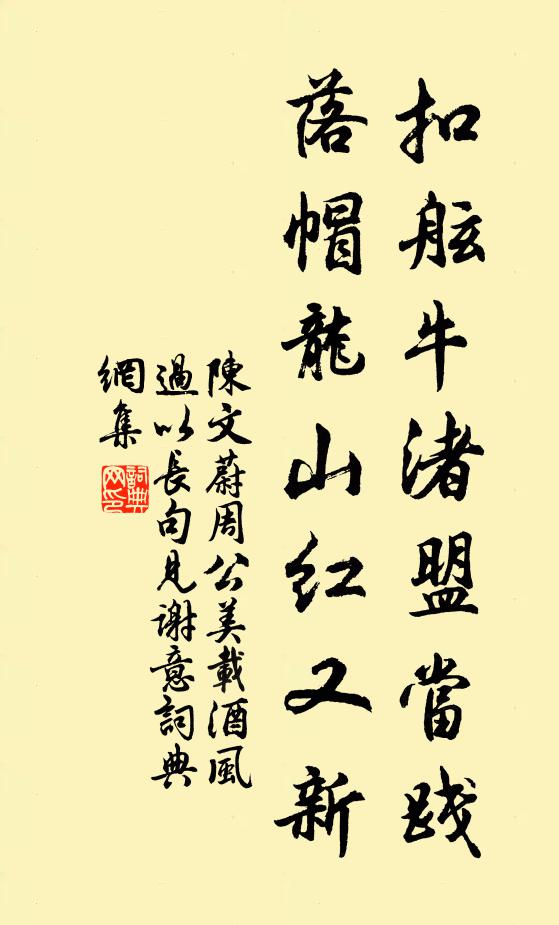 扣舷牛渚盟當踐
落帽龍山紅又新
陳文蔚周公美載酒風
過以長句見謝意詞典
網集
詞典網印